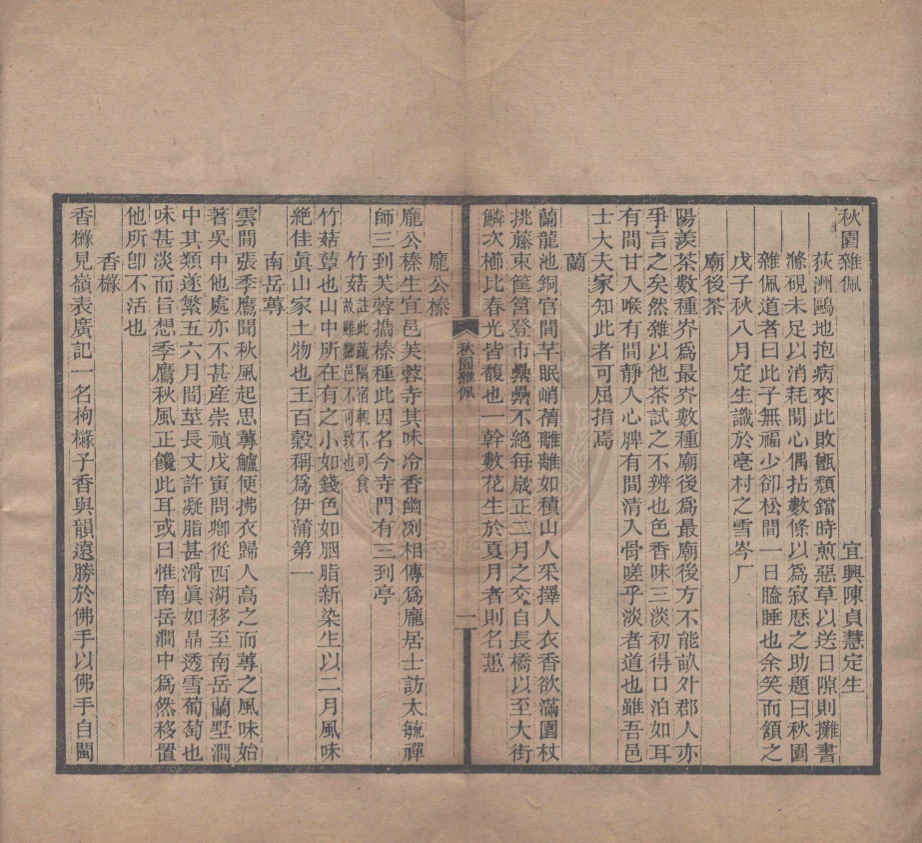 秋園雜佩
宜興陳貞慧定生
荻洲鷗地抱病來此敗甑頹鐺時煎惡草以送日隙則攤書
滌硯未足以消耗閒心偶拈數條以爲寂歷之助題曰秋園
雜佩道者曰此子無福少卻松間一日瞌睡也余笑而頷之
戊子秋八月定生識於亳村之雪岑厂
廟後茶
陽羨茶數種岕爲最岕數種廟後爲最廟後方不能畝外郡人亦
爭言之矣然雜以他茶試之不辨也色香味三淡初得口泊如耳
有間甘入喉有間靜入心脾有間清入骨嗟乎淡者道也雖吾邑
士大夫家知此者可屈指焉
蘭
蘭龍池銅官間芊眠峭蒨離離如積山人采擇人衣香欲滿園杖
挑藤束筐筥登市纍纍不絕每歲正二月之交自長橋以至大街
鱗次櫛比春光皆馥也一幹數花生於夏月者則名蕙
秋園雜佩
一
龐公榛
龐公榛生宜邑芙蓉寺其味冷香幽冽相傳爲龐居士訪太毓禪
師三到芙蓉攜榛種此因名今寺門有三到亭
竹菇
竹菇蕈也山中所在有之小如錢色如胭脂新染生以二月風味
絕佳眞山家土物也王百穀稱爲伊蒲第一
南岳蓴
雲間張季鷹聞秋風起思蓴鱸便拂衣歸人高之而蓴之風味始
著吳中他處亦不甚産崇禎戊寅問卿從西湖移至南岳蘭墅澗
中其類遂繁五六月間莖長文許凝脂甚滑眞如晶透雪葡萄也
味甚淡而旨想季鷹秋風正饞此耳或曰惟南岳澗中爲然移置
他所卽不活也
香櫞
香櫞見嶺表廣記一名枸櫞子香與韻遠勝於佛手以佛手自閩